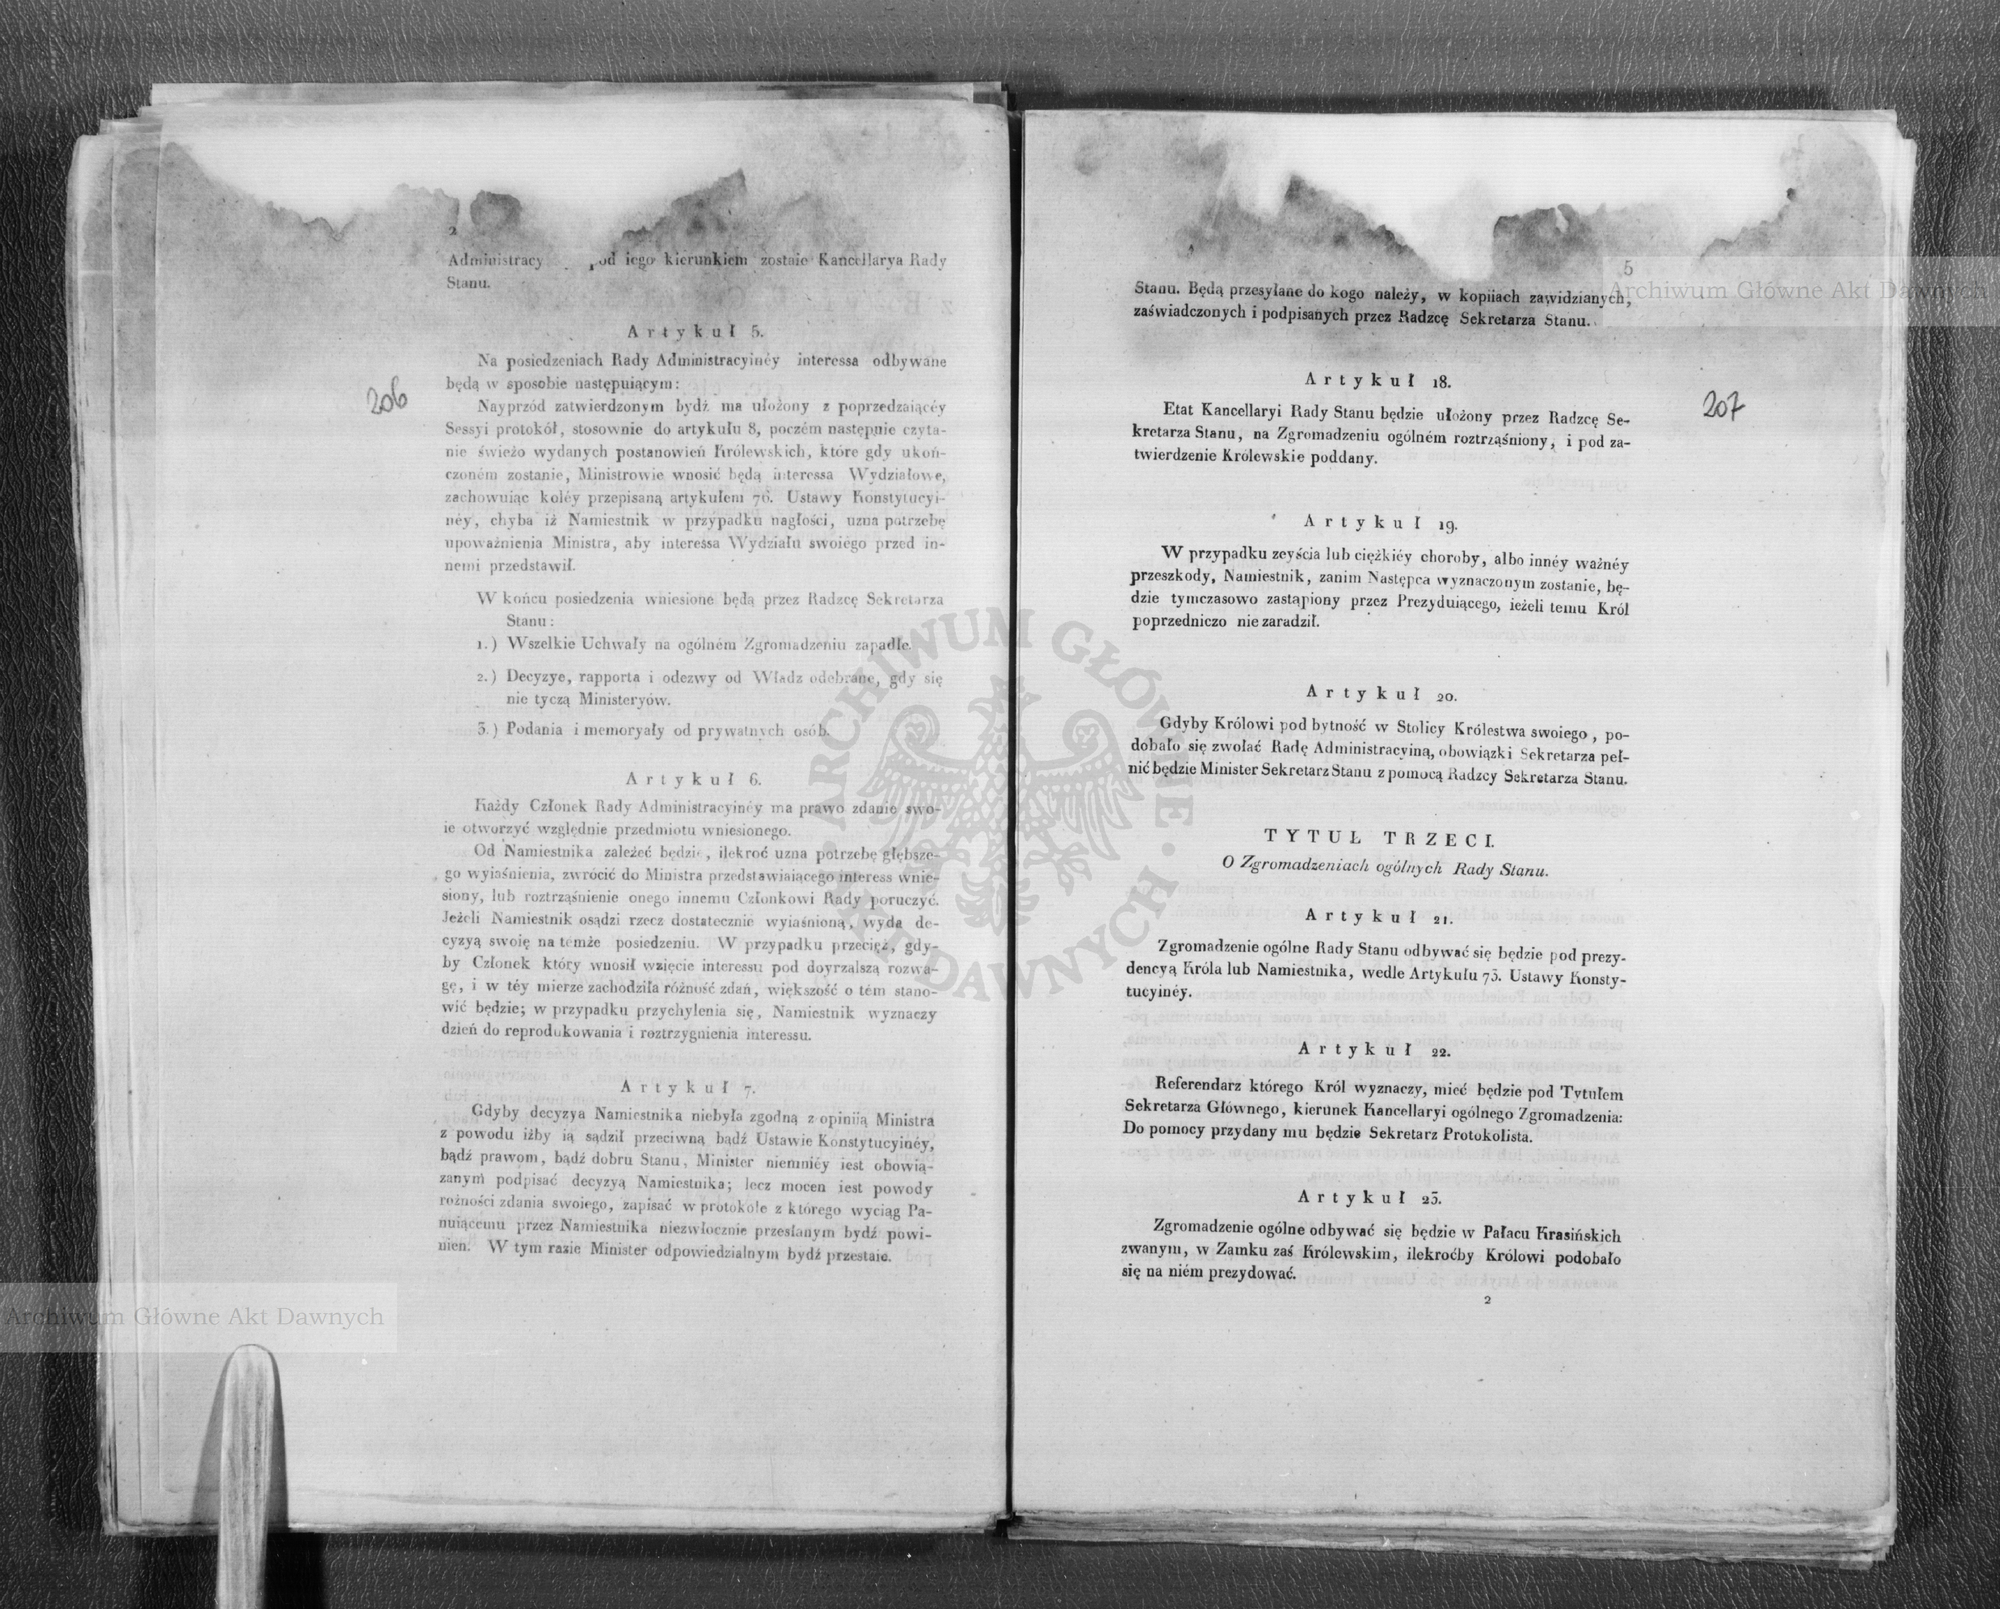 2
Administracy pod iego kierunkiem zostaie Kancellarya Rady
Stanu.
Artykuł 5.
Na posiedzeniach Rady Administracyinéy interessa odbywane
będą w sposobie następuiącym:
206
Nayprzód zatwierdzonym bydź ma ułożony z poprzedzaiącéy
Sessyi protokół, stosownie do artykułu 8, poczém następnie czyta-
nie świeżo wydanych postanowień Królewskich, które gdy ukoń-
czoném zostanie, Ministrowie wnosić będą interessa Wydziałowe,
zachowuiąc koléy przepisaną artykułem 76. Ustawy Konstytucyi-
néy, chyba iż Namiestnik w przypadku nagłości, uzna potrzebę
upoważnienia Ministra, aby interessa Wydziału swoiégo przed in-
nemi przedstawił.
W końcu posiedzenia wniesione będą przez Radzcę Sekretarza
Stanu:
1.) Wszelkie Uchwały na ogólném Zgromadzeniu zapadłe.
2.) Decyzye, rapporta i odezwy od Władz odebrane, gdy się
nie tyczą Ministeryów.
3.) Podania i memoryały od prywatnych osób.
Artykuł 6.
Każdy Członek Rady Administracyinéy ma prawo zdanie swo-
ie otworzyć względnie przedmiotu wniesionego.
Od Namiestnika zależeć będzie, ilekroć uzna potrzebę głębsze-
go wyiaśnienia, zwrócić do Ministra przedstawiaiącego interess wnie-
siony, lub roztrząśnienie onego innemu Członkowi Rady poruczyć.
Jeżeli Namiestnik osądzi rzecz dostatecznie wyiaśnioną, wyda de-
cyzyą swoię na temże posiedzeniu. W przypadku przecięż, gdy-
by Członek który wnosił wzięcie interessu pod doyrzalszą rozwa-
gę, i w téy mierze zachodziła różność zdań, większość o tém stano-
wić będzie; w przypadku przychylenia się, Namiestnik wyznaczy
dzień do reprodukowania i roztrzygnienia interessu.
Artykuł 7.
Gdyby decyzya Namiestnika niebyła zgodną z opiniią Ministra
z powodu iżby ią sądził przeciwną bądź Ustawie Konstytucyinéy,
bądź prawom, bądź dobru Stanu, Minister niemniéy iest obowią-
zanym podpisać decyzyą Namiestnika; lecz mocen iest powody
rożności zdania swoiego, zapisać w protokóle z którego wyciąg Pa-
nuiącemu przez Namiestnika niezwłocznie przesłanym bydź powi-
nien. W tym razie Minister odpowiedzialnym bydź przestaie.
Archiwum Główne Akt Dawnych
5
Archiwum Główne Akt Dawnych
Stanu. Będą przesyłane do kogo należy, w kopiiach zawidzianych,
zaświadczonych i podpisanych przez Radzcę Sekretarza Stanu.
Artykuł 18.
207
Etat Kancellaryi Rady Stanu będzie ułożony przez Radzcę Se-
kretarza Stanu, na Zgromadzeniu ogólném roztrząśniony, i pod za-
twierdzenie Królewskie poddany.
Artykuł 19.
W przypadku zeyścia lub ciężkiéy choroby, albo innéy ważnéy
przeszkody, Namiestnik, zanim Następca wyznaczonym zostanie, bę-
dzie tymczasowo zastąpiony przez Prezyduiącego, ieżeli temu Król
poprzedniczo nie zaradził.
Artykuł 20.
Gdyby Królowi pod bytność w Stolicy Królestwa swoiego, po-
dobało się zwołać Radę Administracyiną, obowiązki Sekretarza peł-
nić będzie Minister Sekretarz Stanu z pomocą Radzcy Sekretarza Stanu.
TYTUŁ TRZECI.
O Zgromadzeniach ogólnych Rady Stanu.
Artykuł 21.
Zgromadzenie ogólne Rady Stanu odbywać się będzie pod prezy-
dencyą Króla lub Namiestnika, wedle Artykułu 73. Ustawy Konsty-
tucyinéy.
Artykuł 22.
Referendarz którego Król wyznaczy, mieć będzie pod Tytułem
Sekretarza Głównego, kierunek Kancellaryi ogólnego Zgromadzenia:
Do pomocy przydany mu będzie Sekretarz Protokolista.
Artykuł 23.
Zgromadzenie ogólne odbywać się będzie w Pałacu Krasińskich
zwanym, w Zamku zaś Królewskim, ilekroćby Królowi podobało
się na niém prezydować.
2
ARCHIWUM GŁÓWNE AKT DAWNYCH